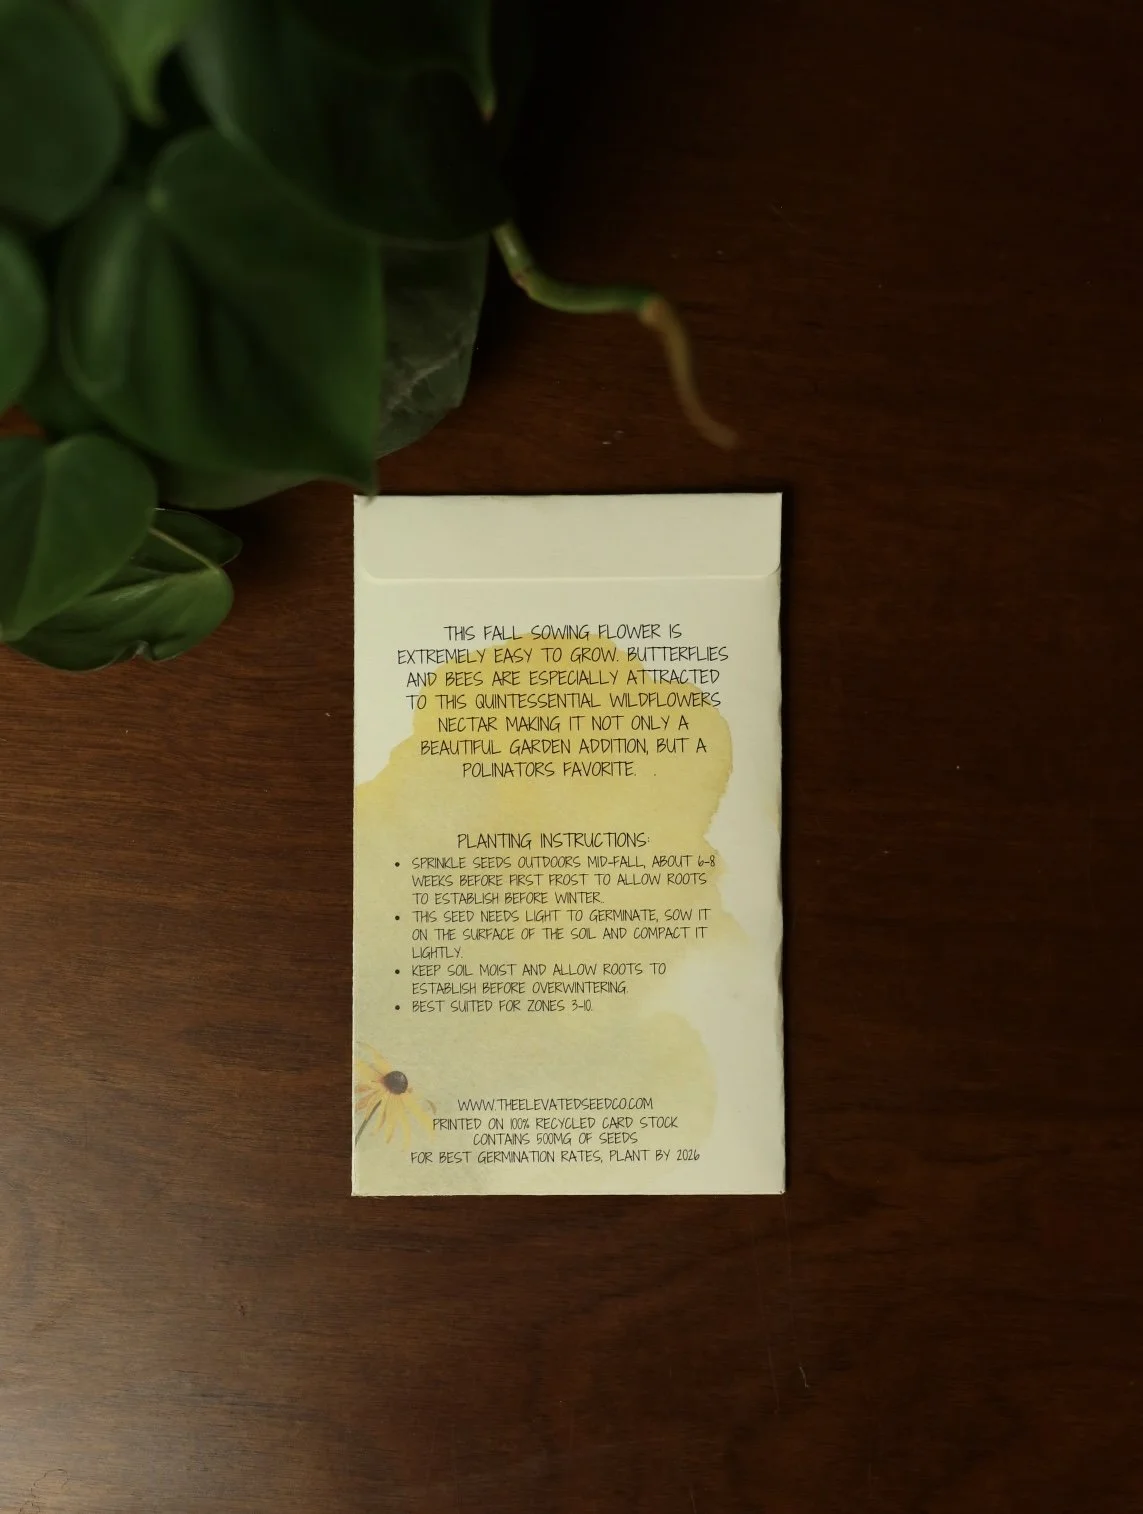 THIS FALL SOWING FLOWER IS
EXTREMELY EASY TO GROW. BUTTERFLIES
AND BEES ARE ESPECIALLY ATTRACTED
TO THIS QUINTESSENTIAL WILDFLOWERS
NECTAR MAKING IT NOT ONLY A
BEAUTIFUL GARDEN ADDITION, BUT A
POLINATORS FAVORITE. .
PLANTING INSTRUCTIONS:
• SPRINKLE SEEDS OUTDOORS MID-FALL, ABOUT 6-8
WEEKS BEFORE FIRST FROST TO ALLOW ROOTS
TO ESTABLISH BEFORE WINTER.
• THIS SEED NEEDS LIGHT TO GERMINATE, SOW IT
ON THE SURFACE OF THE SOIL AND COMPACT IT
LIGHTLY.
• KEEP SOIL MOIST AND ALLOW ROOTS TO
ESTABLISH BEFORE OVERWINTERING.
• BEST SUITED FOR ZONES 3-10.
WWW.THEELEVATEDSEEDCO.COM
PRINTED ON 100% RECYCLED CARD STOCK
CONTAINS 500MG OF SEEDS
FOR BEST GERMINATION RATES, PLANT BY 2026